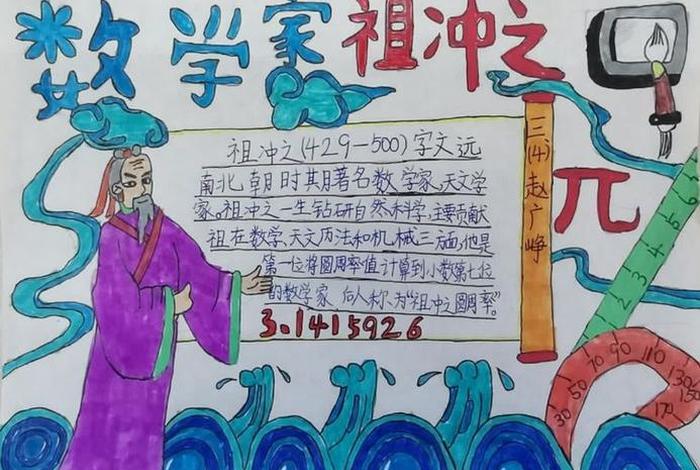 数学家祖冲之
祖冲之(429-500)字文远
南北朝时期著名数学家、天文学
家。祖冲之一生钻研自然科学,主要贡献
祖在数学、天文历法和机械三方面,他是
第一位将圆周率值计算到小数第七位
的数学家 后人称为“祖冲之圆周率”。
3.1415926
三(4)赵广峥
π
1 2 3 4 5 6
30 50 70 90 110 130 150 170